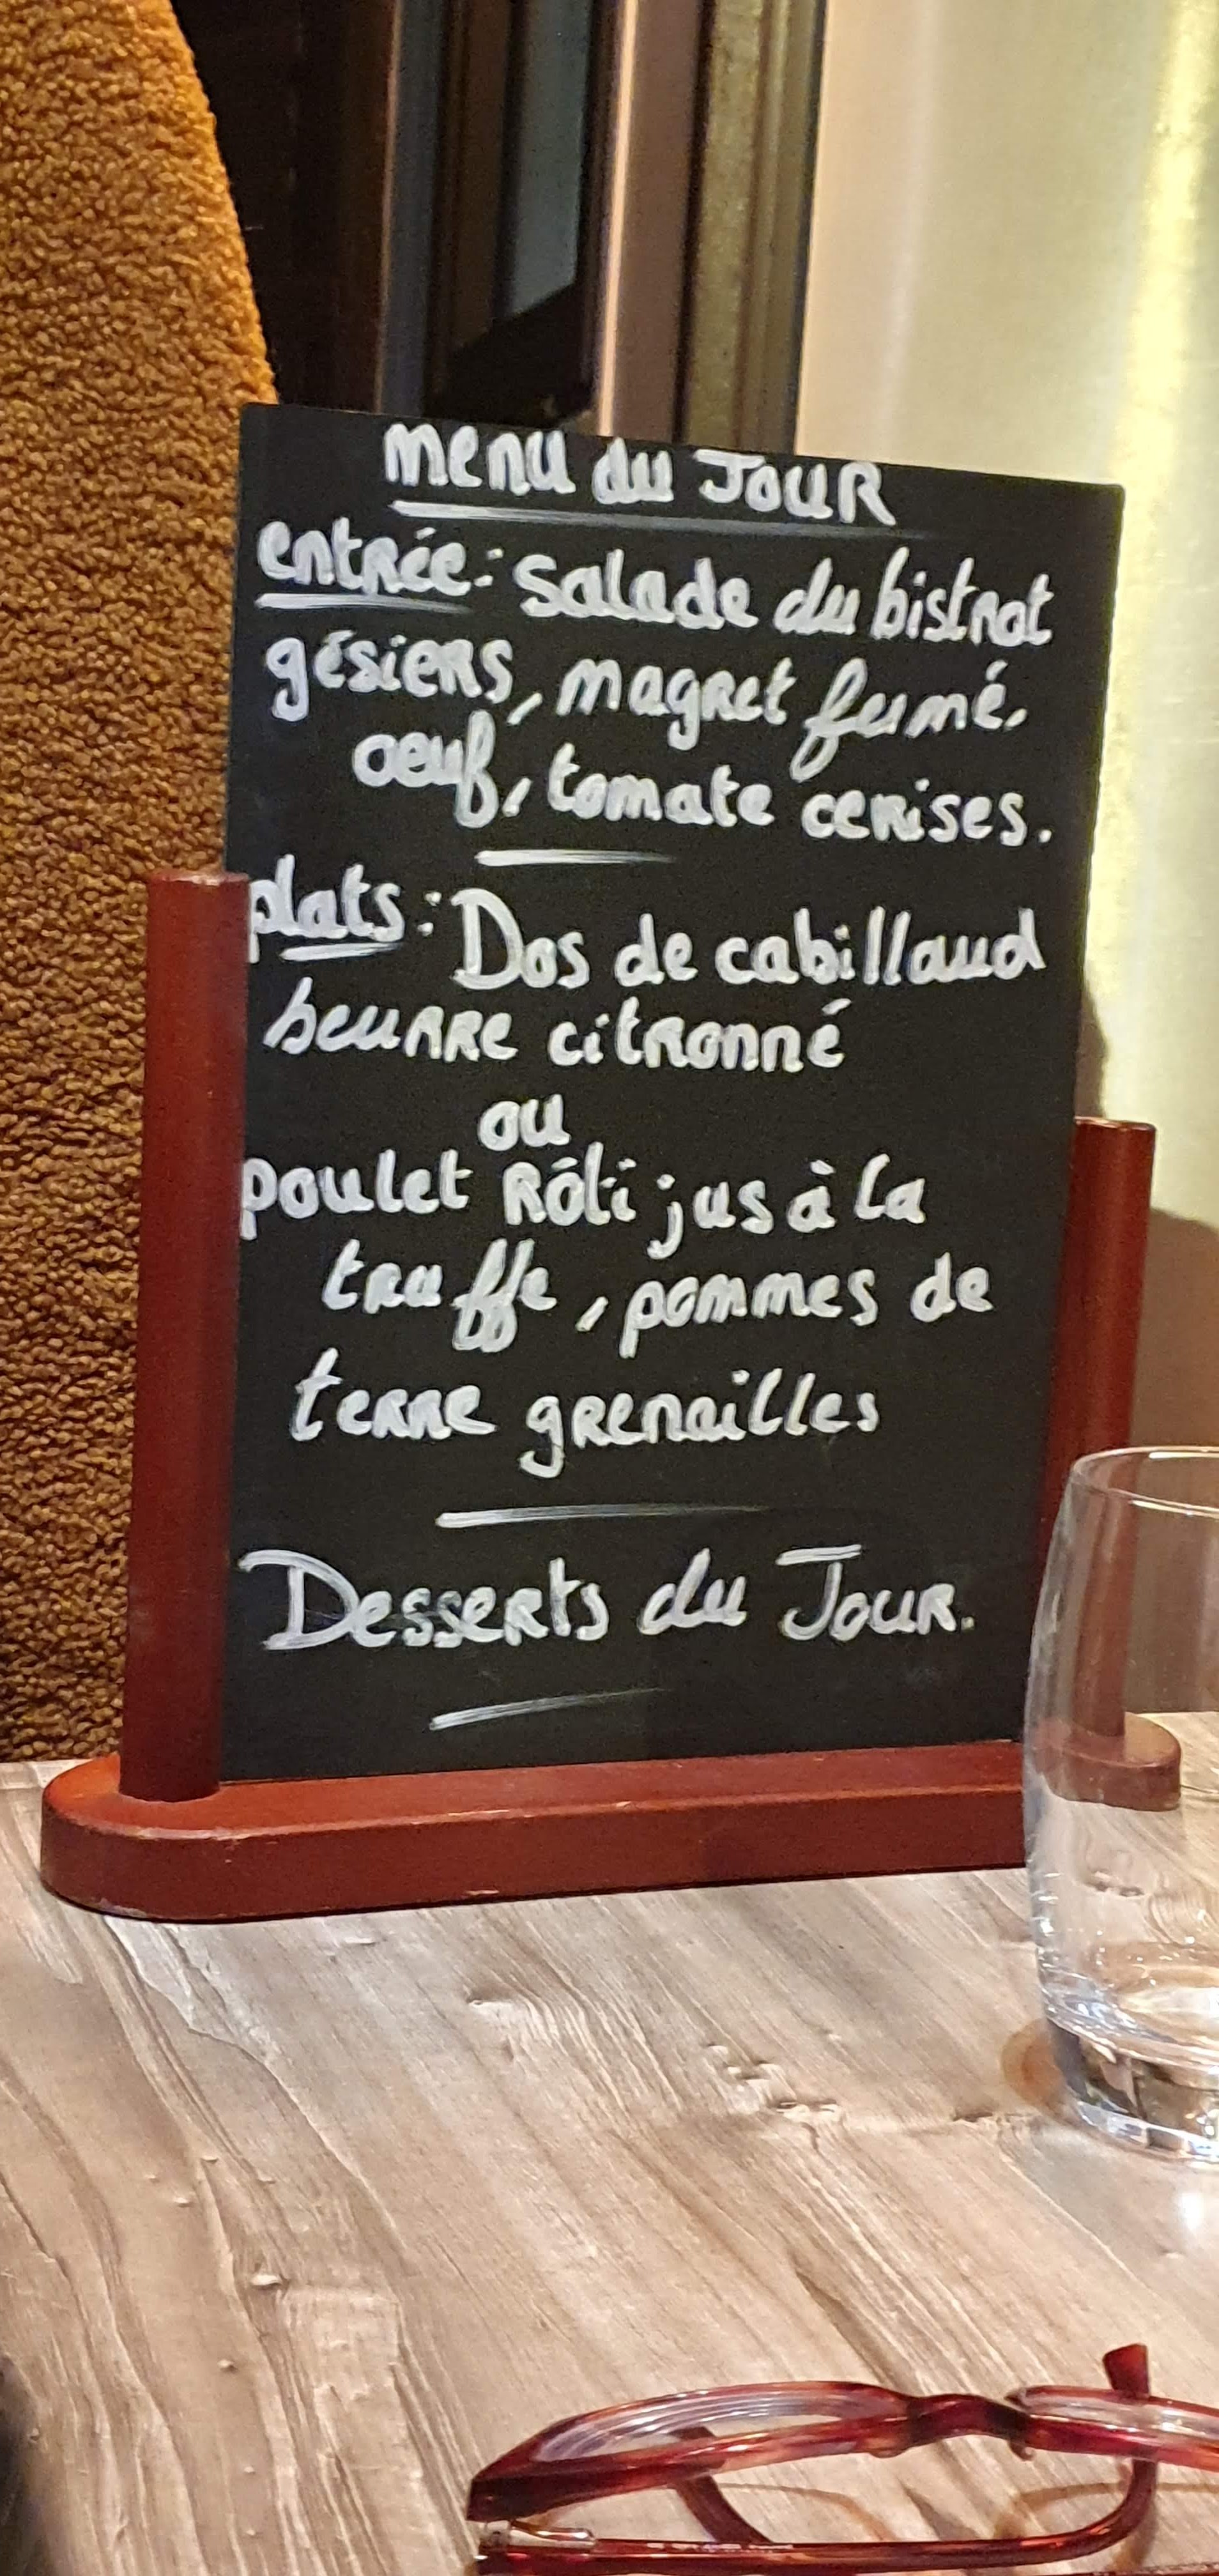 menu du JOUR
entrée: salade du bistrot
gésiers, magret fumé.
oeuf, tomate cerises.
plats: Dos de cabillaud
beurre citronné
ou
poulet Rôti jus à la
truffe, pommes de
terre grenailles
Desserts du Jour.